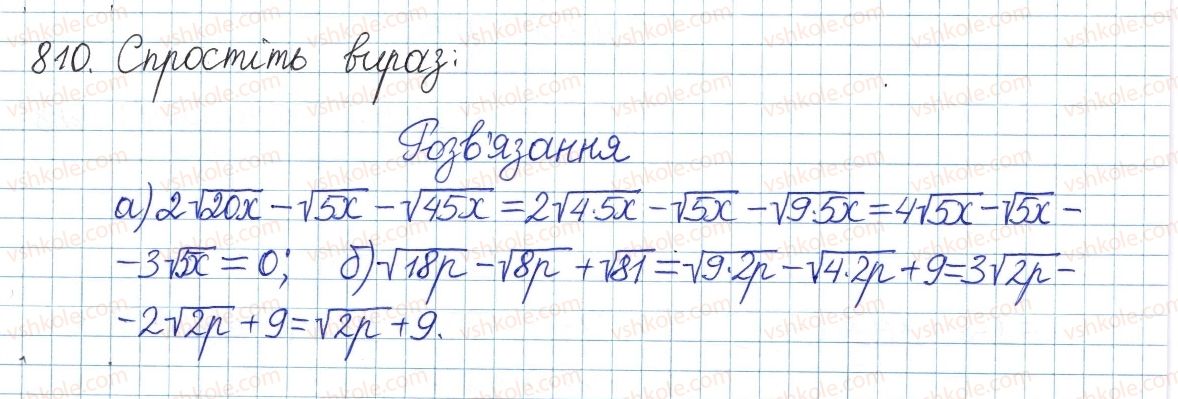 810. Спростіть вираз:
Розв'язання
а) 2√20x - √5x - √45x = 2√4·5x - √5x - √9·5x = 4√5x - √5x -
- 3√5x = 0; б) √18p - √8p + √81 = √9·2p - √4·2p + 9 = 3√2p -
- 2√2p + 9 = √2p + 9.